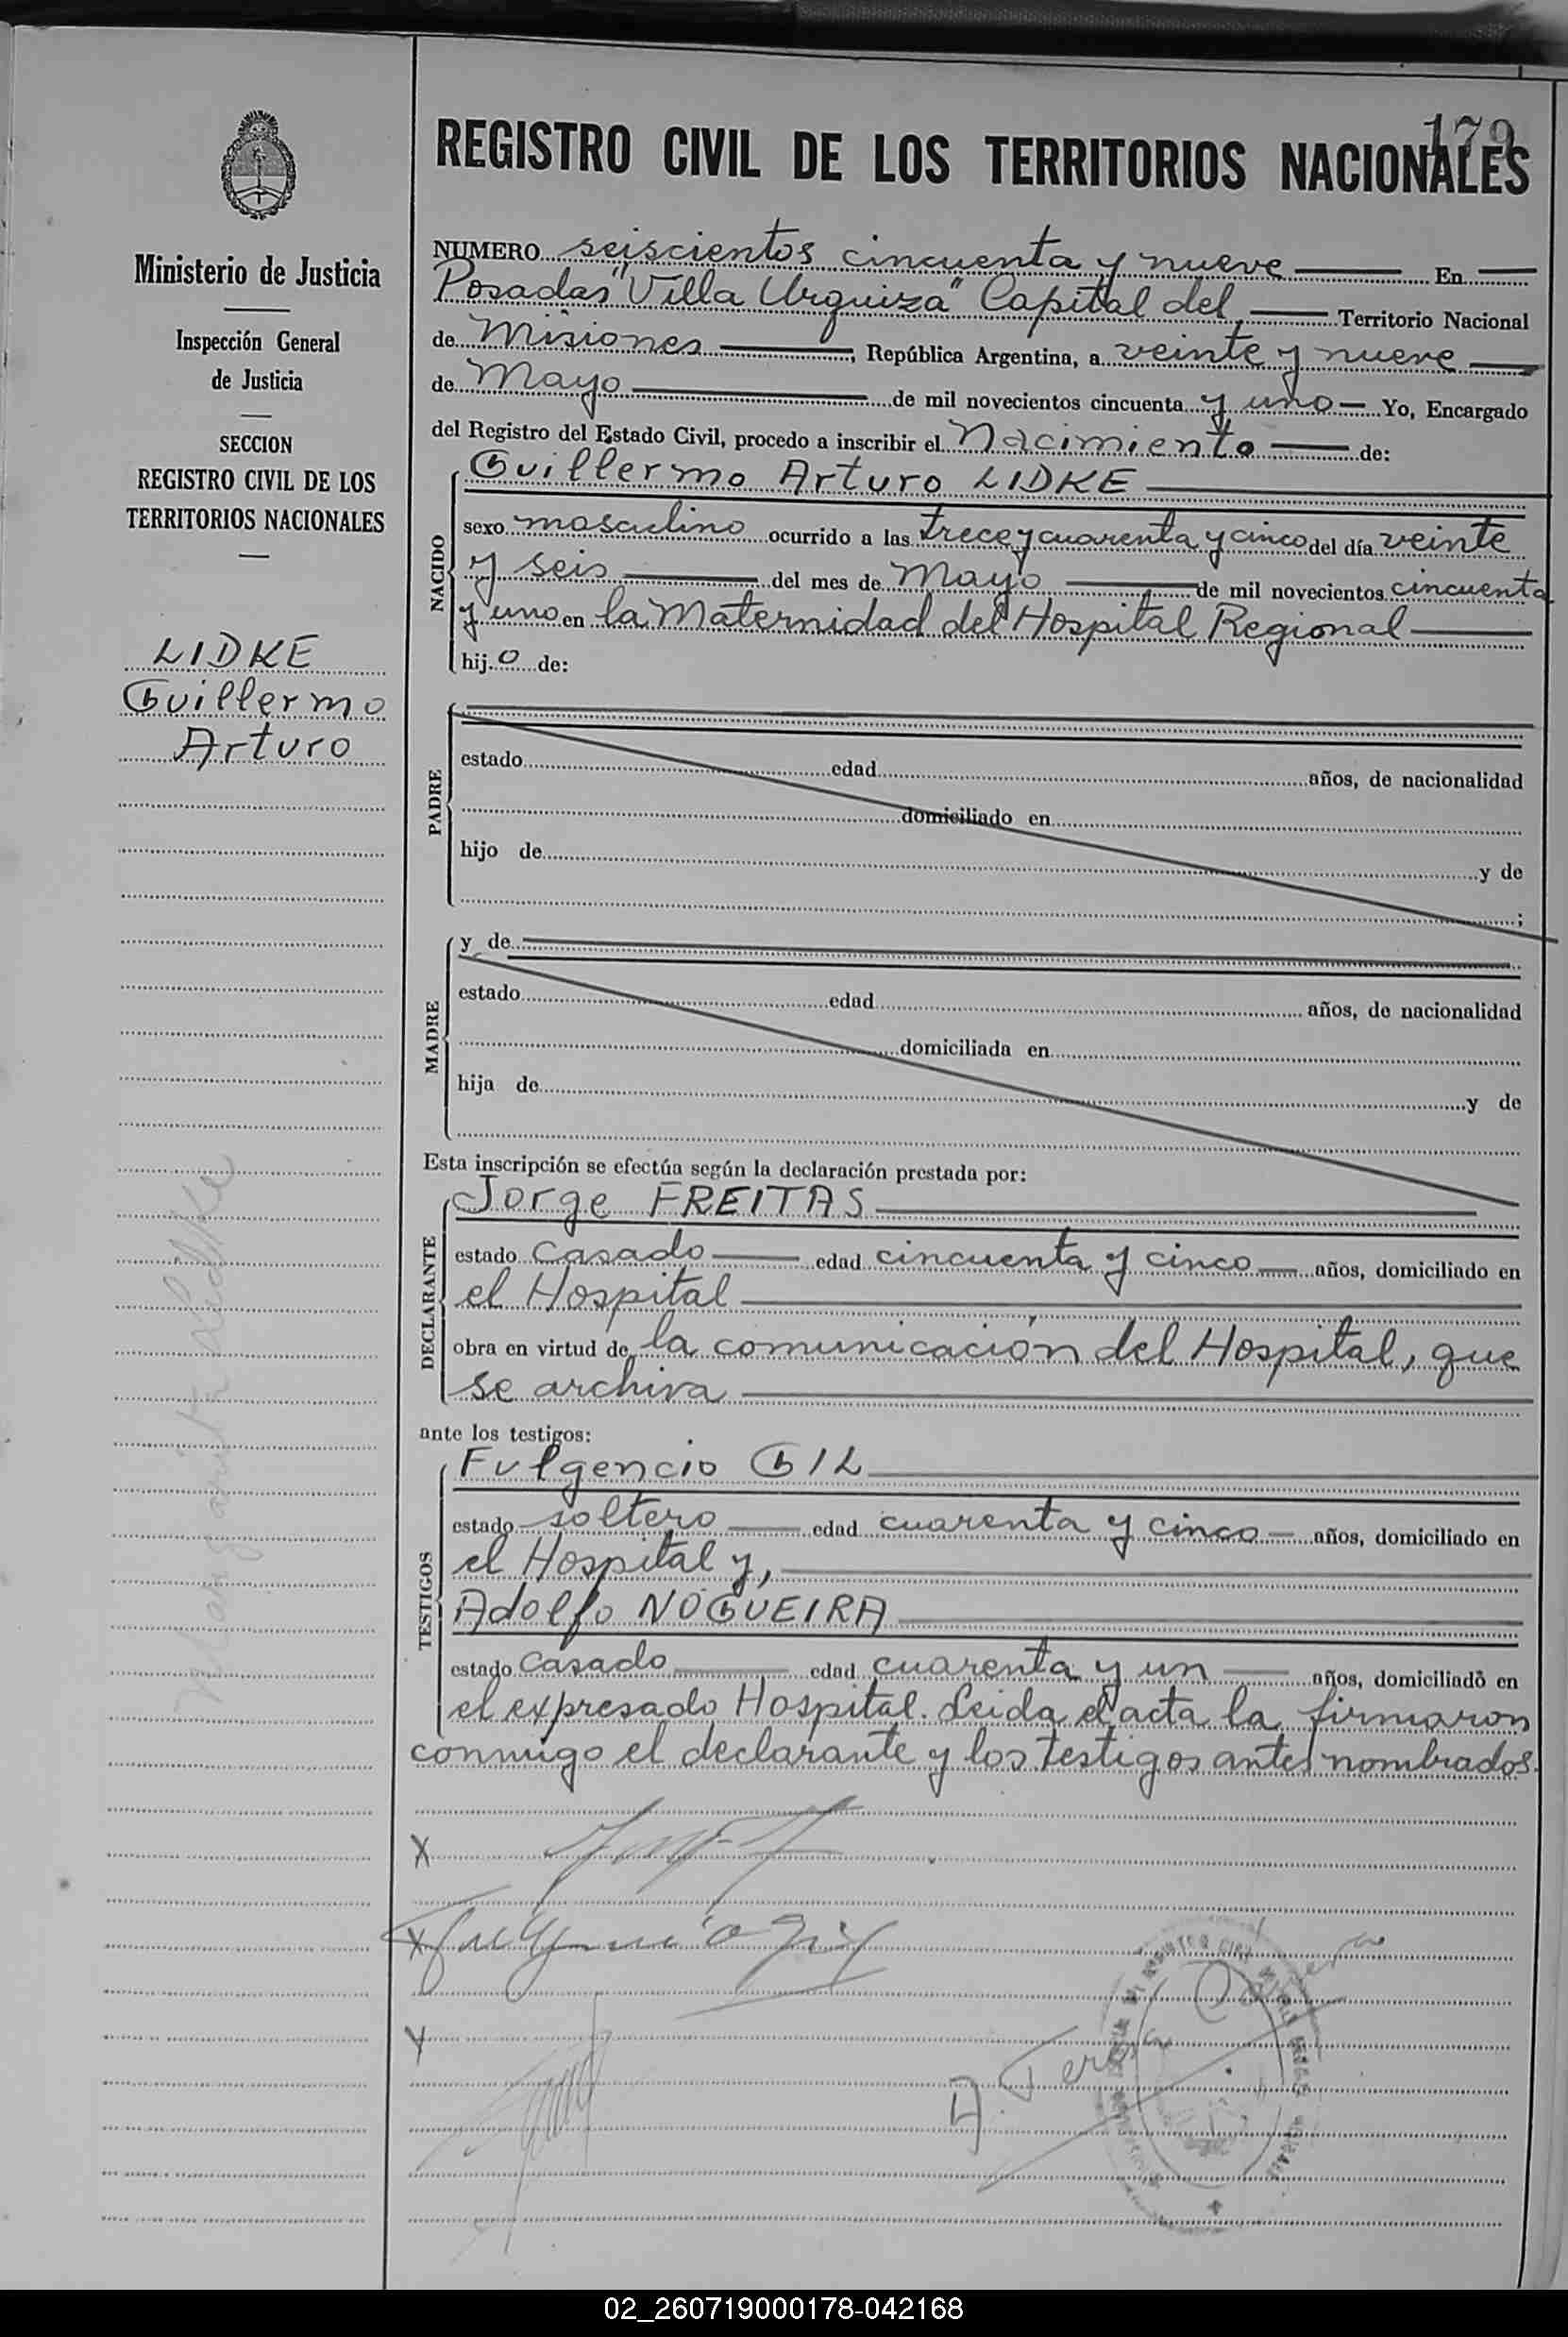 179
REGISTRO CIVIL DE LOS TERRITORIOS NACIONALES
Ministerio de Justicia
Inspección General
de Justicia
SECCION
REGISTRO CIVIL DE LOS
TERRITORIOS NACIONALES
LIDKE
Guillermo
Arturo
NUMERO seiscientos cincuenta y nueve En
Posadas "Villa Urquiza" Capital del Territorio Nacional
de Misiones, República Argentina, a veinte y nueve
de Mayo de mil novecientos cincuenta y uno Yo, Encargado
del Registro del Estado Civil, procedo a inscribir el Nacimiento de:
NACIDO
Guillermo Arturo LIDKE
sexo masculino ocurrido a las trece y cuarenta y cinco del día veinte
y seis del mes de Mayo de mil novecientos cincuenta
y uno en la Maternidad del Hospital Regional
hijo de:
PADRE
estado edad años, de nacionalidad
domiciliado en
hijo de y de
;
MADRE
y de
estado edad años, de nacionalidad
domiciliada en
hija de y de
Esta inscripción se efectúa según la declaración prestada por:
DECLARANTE
Jorge FREITAS
estado Casado edad cincuenta y cinco años, domiciliado en
el Hospital
obra en virtud de la comunicación del Hospital, que
se archiva
ante los testigos:
TESTIGOS
Fulgencio GIL
estado soltero edad cuarenta y cinco años, domiciliado en
el Hospital y,
Adolfo NOGUEIRA
estado Casado edad cuarenta y un años, domiciliado en
el expresado Hospital. Leida el acta la firmaron
conmigo el declarante y los testigos antes nombrados.
X
X Fulgencio Gil
X
02_260719000178-042168